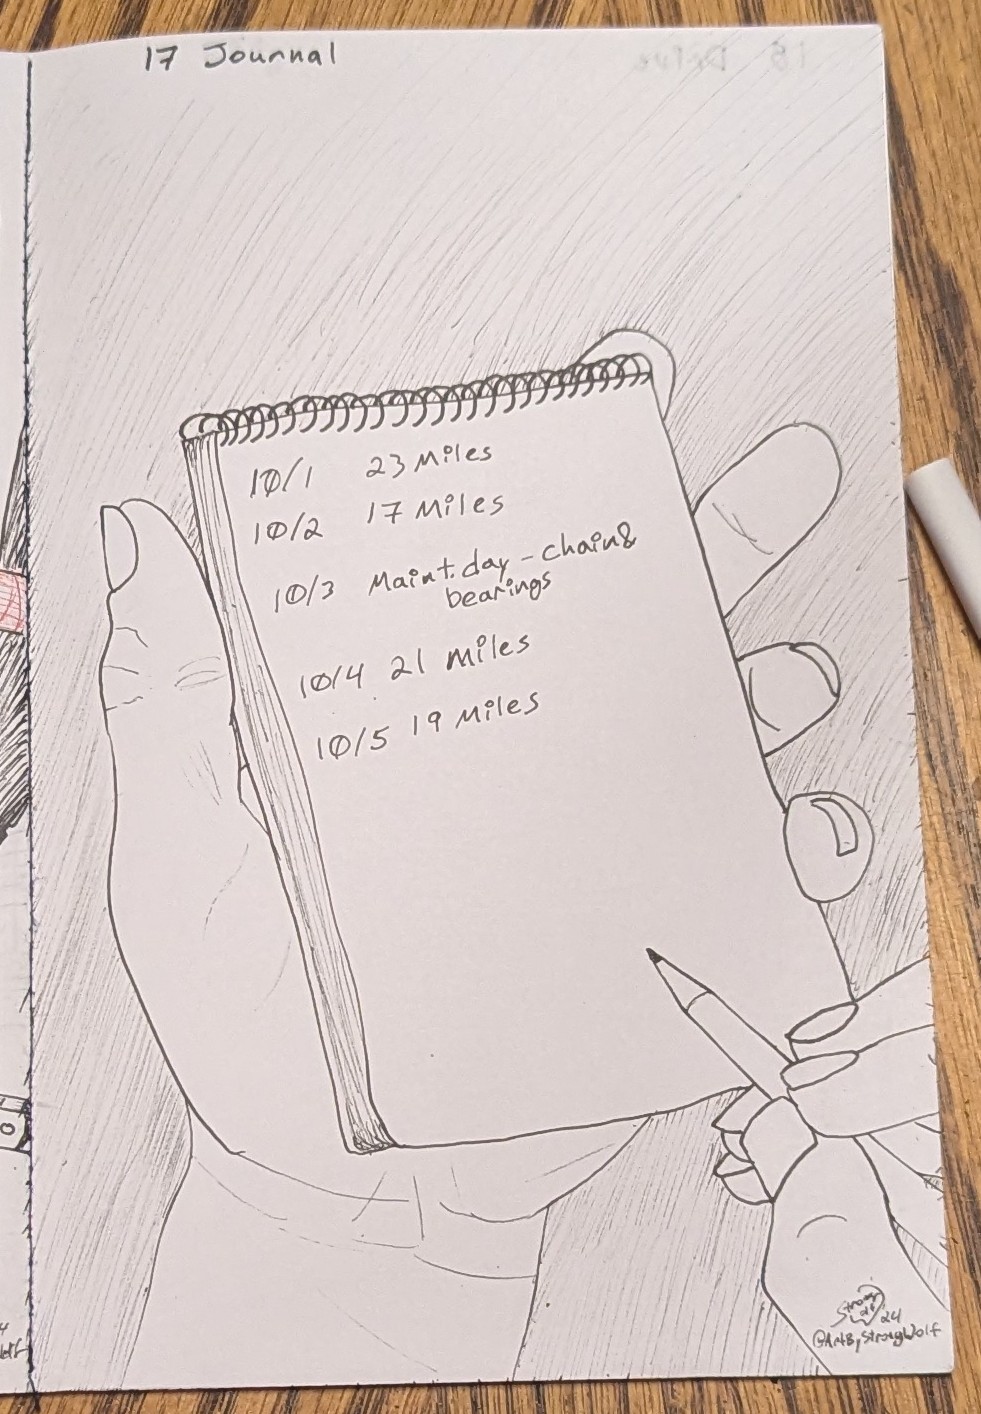 17 Journal
10/1 23 Miles
10/2 17 Miles
10/3 Maint. day - chain &
bearings
10/4 21 Miles
10/5 19 Miles
Strong
Wolf '24
@ArtByStrongWolf